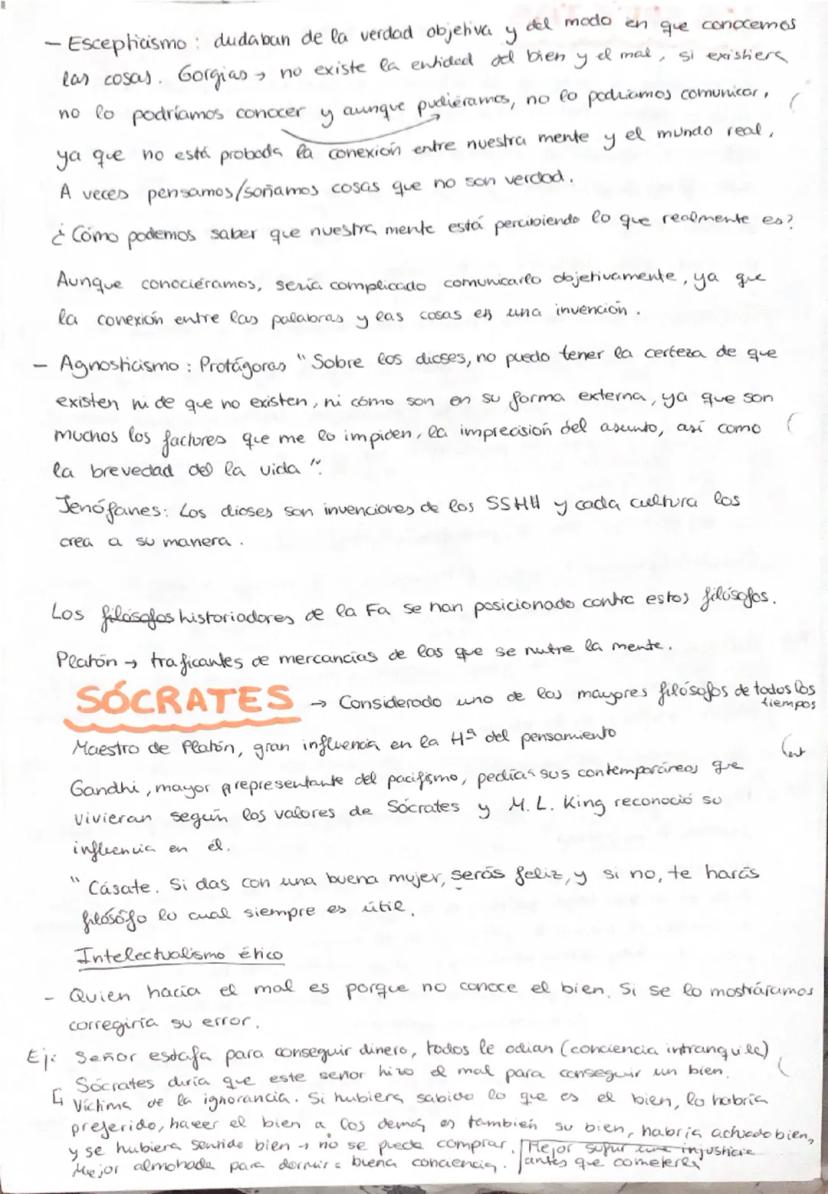 - Escepticismo: dudaban de la verdad objetiva y del modo en que conocemos
las cosas. Gorgias → no existe la entidad del bien y el mal, si existiera
no lo podríamos conocer y aunque pudiéramos, no lo podríamos comunicar,
ya que no está probada la conexión entre nuestra mente y el mundo real.
A veces pensamos/soñamos cosas que no son verdad.
¿Cómo podemos saber que nuestra mente está percibiendo lo que realmente es?
Aunque conociéramos, sería complicado comunicarlo objetivamente, ya que
la conexión entre las palabras y las cosas es una invención.
- Agnosticismo: Protágoras "Sobre los dioses, no puedo tener la certeza de que
existen ni de que no existen, ni cómo son en su forma externa, ya que son
muchos los factores que me lo impiden, la imprecisión del asunto, así como
la brevedad de la vida".
Jenófanes: Los dioses son invenciones de los SSHH y cada cultura los
crea a su manera.
Los filósofos historiadores de la Fa se han posicionado contra estos filósofos.
Platón → traficantes de mercancías de las que se nutre la mente.
SÓCRATES → Considerado uno de los mayores filósofos de todos los
tiempos
Maestro de Platón, gran influencia en la Hª del pensamiento
Gandhi, mayor representante del pacifismo, pedía a sus contemporáneos que
vivieran según los valores de Sócrates y M. L. King reconoció su
influencia en él.
"Cásate. Si das con una buena mujer, serás feliz, y si no, te harás
filósofo lo cual siempre es útil.
Intelectualismo ético
- Quien hacía el mal es porque no conoce el bien. Si se lo mostráramos
corregiría su error.
Ej: Señor estafa para conseguir dinero, todos le odian (conciencia intranquila)
Sócrates diría que este señor hizo el mal para conseguir un bien.
Víctima de la ignorancia. Si hubiera sabido lo que es el bien, lo habría
preferido, hacer el bien a los demás es también su bien, habría actuado bien,
y se hubiera sentido bien → no se puede comprar. Mejor sufrir una injusticia
Mejor almohada para dormir = buena conciencia. antes que cometerla